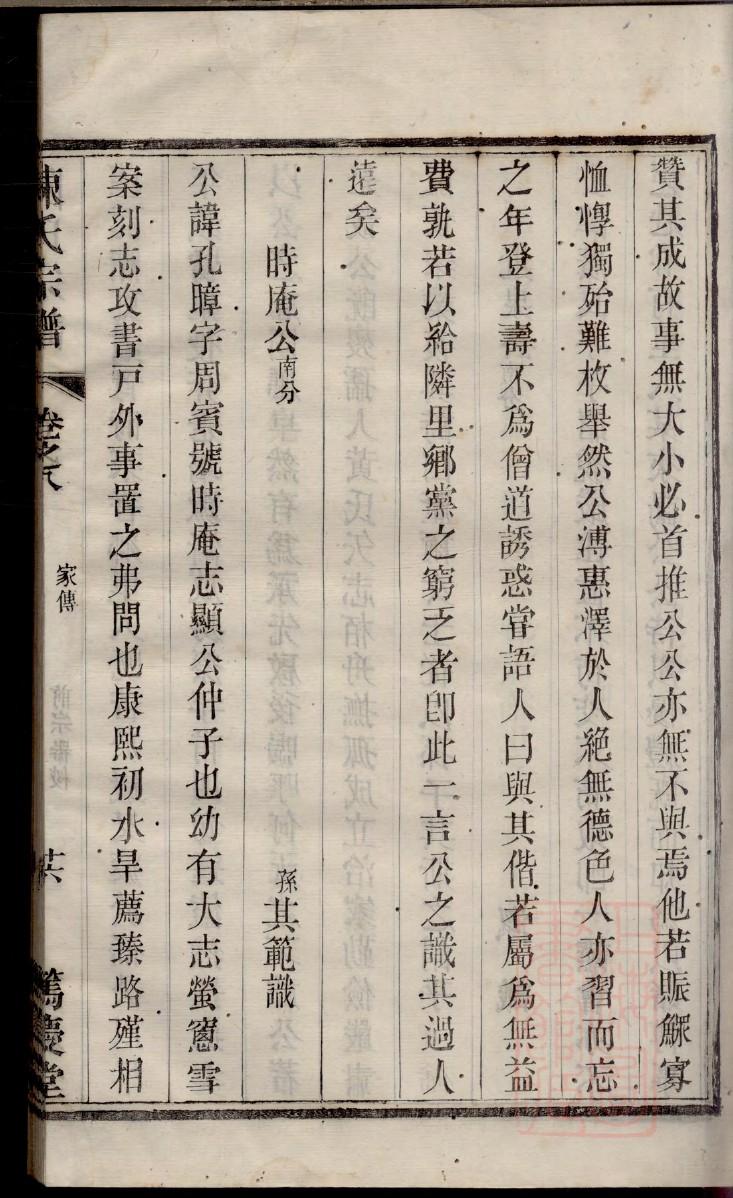 贊其成故事無大小必首推公公亦無不與焉他若賑鰥寡
恤惸獨殆難枚舉然公溥惠澤於人絕無德色人亦習而忘
之年登上壽不爲僧道誘惑甞語人曰與其偕若屬爲無益
費孰若以給隣里鄉黨之窮乏者卽此一言公之識其過人
遠矣
時庵公南分
孫其範識
公諱孔暲字周賓號時庵志顯公仲子也幼有大志螢窻雪
案刻志攻書戸外事置之弗問也康熙初水旱薦臻路殣相
陳氏宗譜
卷之八
家傳
篤慶堂